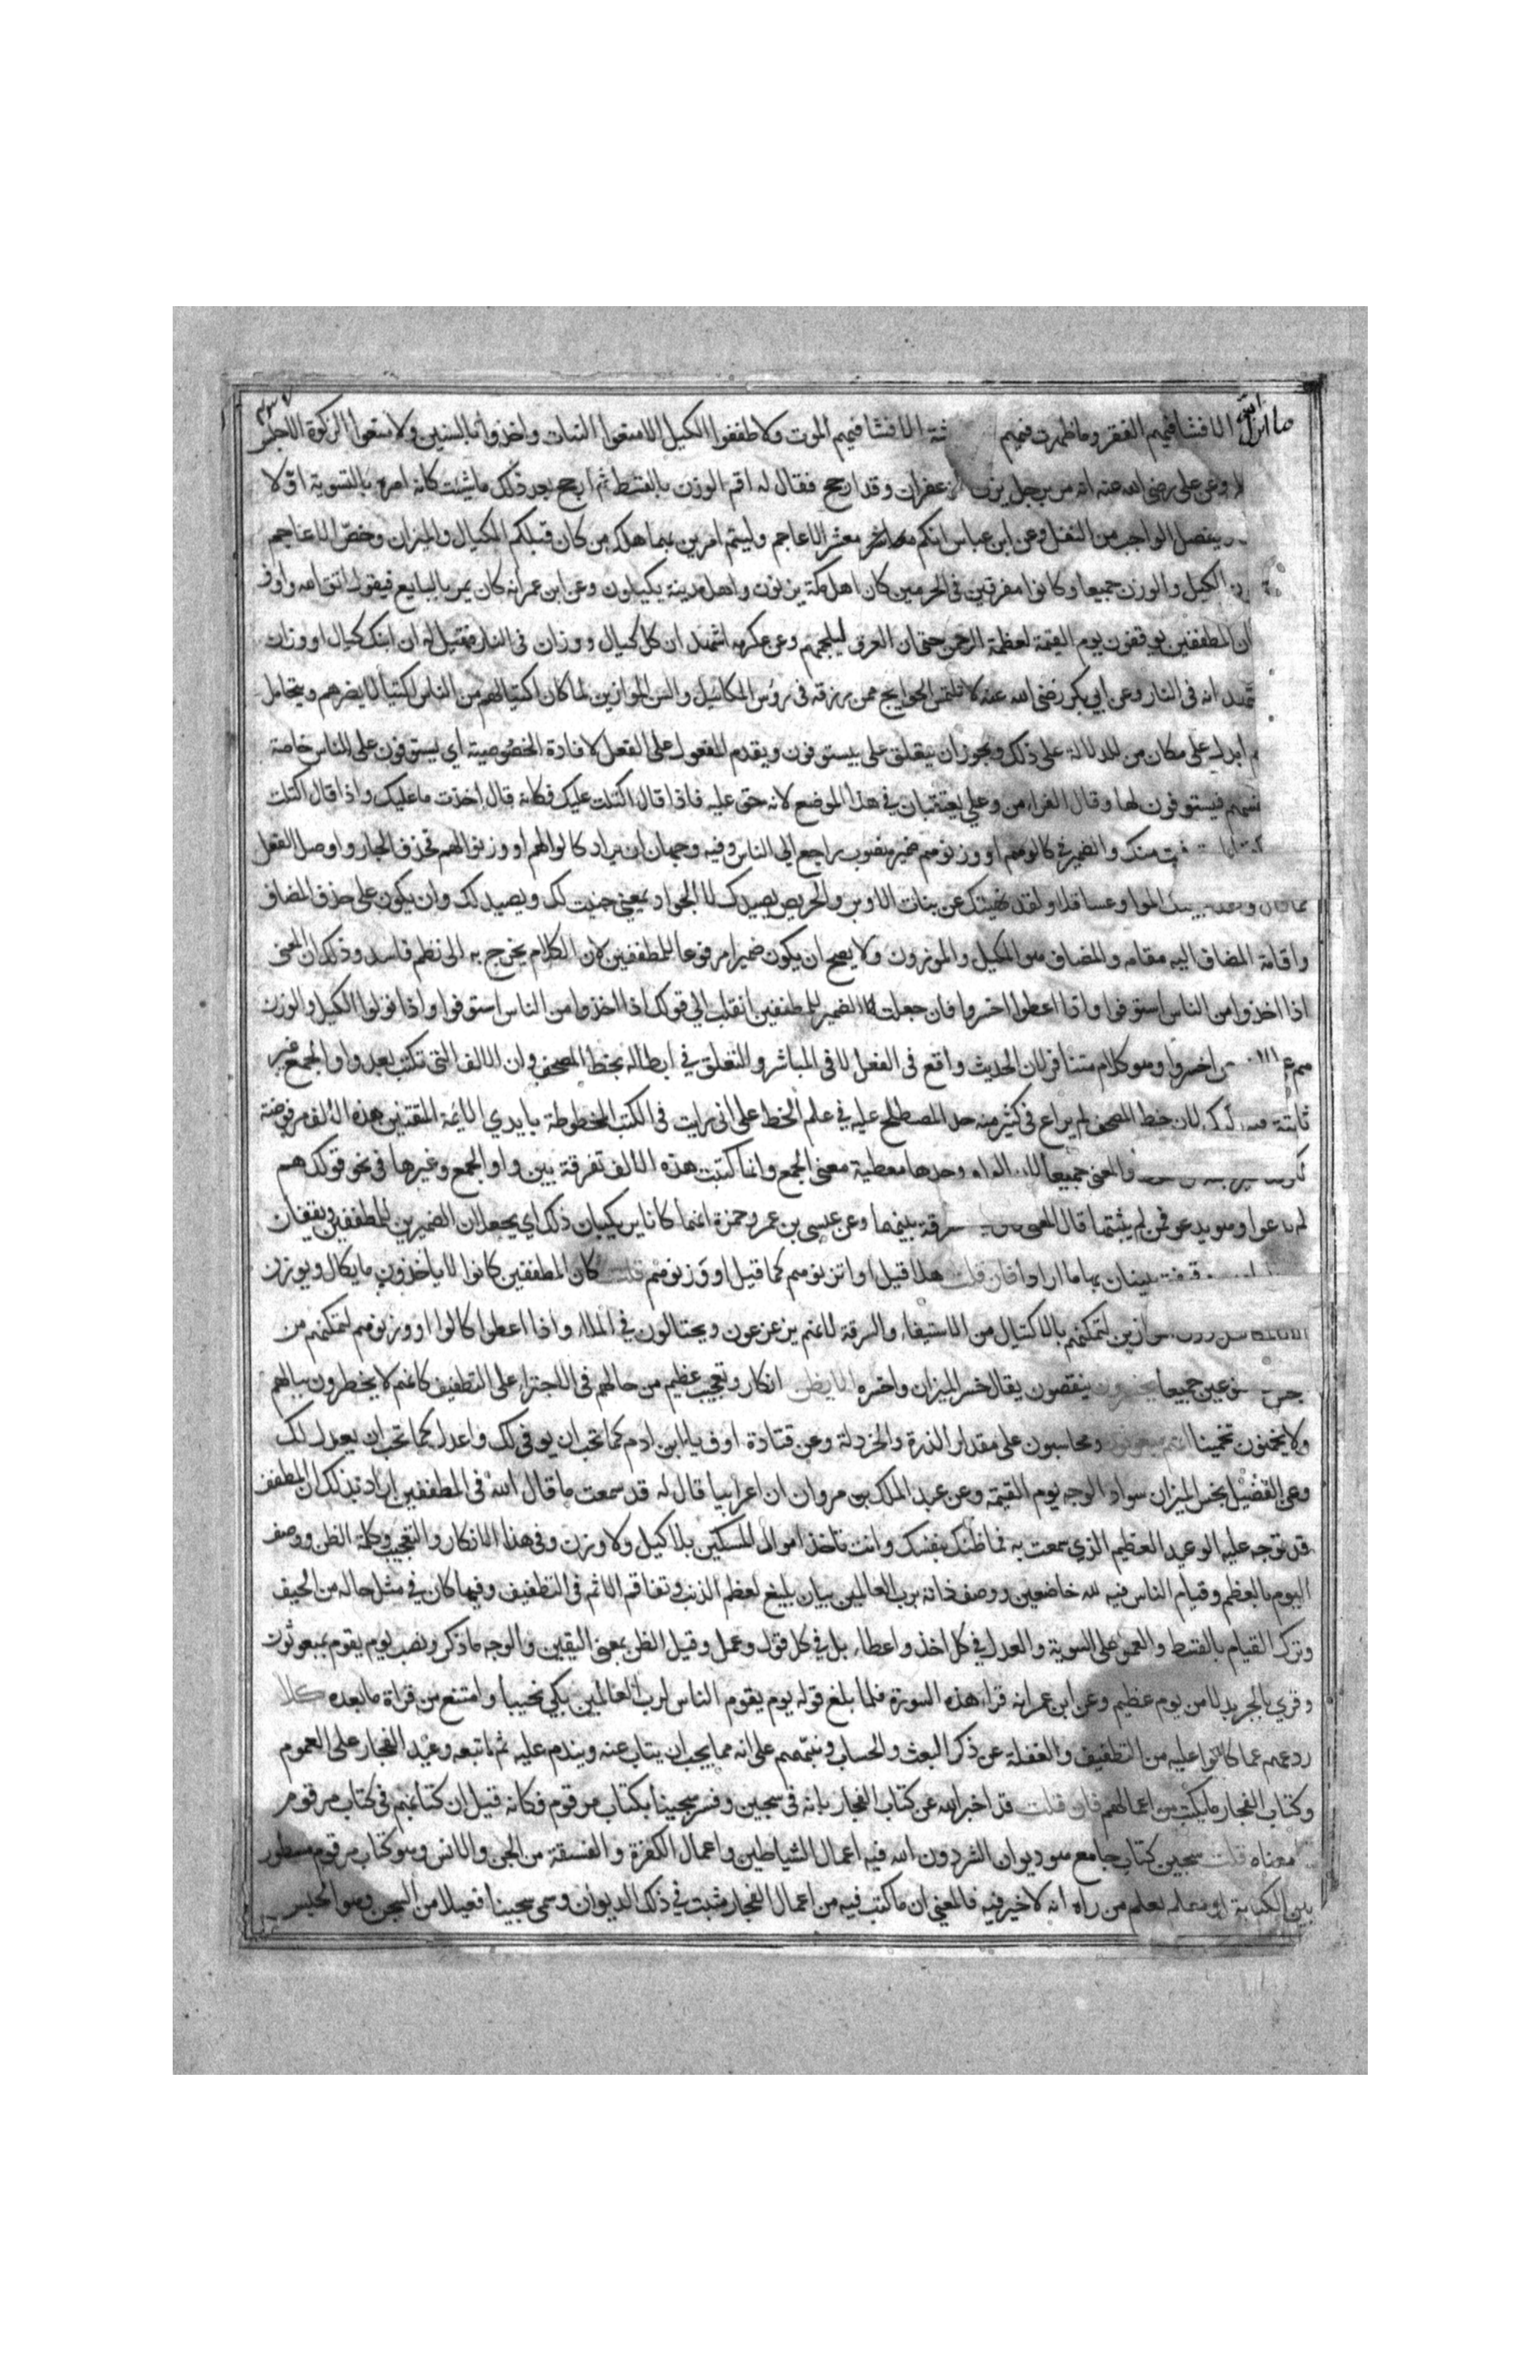 ما انزل الله الا فشا فيهم الفقر وما ظهرت فيهم الفاحشة الا فشا فيهم الموت ولا طففوا الكيل الا منعوا النبات واخذوا بالسنين ولا منعوا الزكوة الا حبس
وعن علي رضي الله عنه انه مر برجل يزن الزعفران وقد ارجح فقال له اقم الوزن بالقسط ثم ارجح بعد ذلك ما شئت كانه امره بالتسوية اولا
يفصل الواجب من النفل وعن ابن عباس انكم معشر الاعاجم وليتم امرين بهما هلك من كان قبلكم المكيال والميزان وخص الاعاجم
الكيل والوزن جميعا وكانوا مفرقين في الحرمين كان اهل مكة يزنون واهل مدينة يكيلون وعن ابن عمر انه كان يمر بالبايع فيقول اتق الله واوف
ان المطففين يوقفون يوم القيمة لعظمة الرحمن حتى ان العرق ليلجمهم وعن عكرمه اشهد ان كل كيال ووزان في النار فقيل له ان ابنك كيال او وزان
اشهد انه في النار وعن ابي بكر رضي الله عنه لا تلتمس الحوايج ممن رزقه في رؤس المكائيل والسن الموازين لما كان اكتيالهم من الناس اكتيالا يضرهم ويتحامل
ابدل على مكان من للدلالة على ذلك ويجوز ان يتعلق على بيستوفون ويقدم المفعول على الفعل لافادة الخصوصية اي يستوفون على الناس خاصة
فيستوفون لها وقال الفراء من وعلى يعتقبان في هذا الموضع لانه حق عليه فاذا قال اكتلت عليك فكانه قال اخذت ما عليك واذا قال اكتلت
منك والضمير في كالوهم او وزنوهم ضمير منصوب راجع الى الناس وفيه وجهان ان يراد كالوا لهم او وزنوا لهم فحذف الجار واوصل الفعل
اكموا وعساقلا ولقد نهيتك عن بنات الاوبر والحريص يصيدك لا الجواد بمعنى جنيت لك ويصيد لك وان يكون على حذف المضاف
واقامة المضاف اليه مقامه والمضاف هو المكيل والموزون ولا يصح ان يكون ضميرا مرفوعا للمطففين لان الكلام يخرج به الى نظم فاسد وذلك ان المعنى
اذا اخذوا من الناس استوفوا واذا اعطوا اخسروا فان جعلت الضمير للمطففين انقلب الى قولك اذا اخذوا من الناس استوفوا واذا تولوا الكيل والوزن
هم اخسروا وهو كلام متنافر لان الحديث واقع في الفعل لا في المباشر والتعلق في ابطاله بخط المصحف وان الالف التي تكتب بعد واو الجمع غير
ثابتة فيه ركيك لان خط المصحف لم يراع في كثير منه حد المصطلح عليه في علم الخط على اني رايت في الكتب المخطوطة بايدي الايمة المتقنين هذه الالف مرفوضة
والمعنى جميعا لان الواو وحدها معطية معنى الجمع وانما كتبت هذه الالف تفرقة بين واو الجمع وغيرها في نحو قولك هم
لم يدعوا وهو يدعو فمن لم يثبتها قال المعنى تفرقة بينهما وعن عيسى بن عمر وحمزة انهما كانا يرتكبان ذلك اي يجعلان الضميرين للمطففين ويقفان
وقيفة يبينان بها ما ارادا فان قلت هلا قيل او اتزنوهم كما قيل او وزنوهم قلت كان المطففين كانوا لا ياخذون ما يكال ويوزن
الا بالمكاييل دون الموازين لتمكنهم بالاكتيال من الاستيفاء والسرقة لانهم يزعزعون ويحتالون في الملاء واذا اعطوا كالوا او وزنوهم لتمكنهم من
النوعين جميعا يخسرون ينقصون يقال خسر الميزان واخسره الا يظن انكار وتعجيب عظيم من حالهم في الاجتراء على التطفيف كانهم لا يخطرون ببالهم
ولا يخمنون تخمينا انهم مبعوثون ومحاسبون على مقدار الذرة والخردلة وعن قتادة اوف يا ابن ادم كما تحب ان يوفى لك واعدل كما تحب ان يعدل لك
وعن الفضيل بخس الميزان سواد الوجه يوم القيمة وعن عبد الملك بن مروان ان اعرابيا قال له قد سمعت ما قال الله في المطففين اراد بذلك ان المطفف
قد توجه عليه الوعيد العظيم الذي سمعت به فما ظنك بنفسك وانت تاخذ اموال المسلمين بلا كيل ولا وزن وفي هذا الانكار والتعجيب وكلمة الظن ووصف
اليوم بالعظم وقيام الناس فيه لله خاضعين ووصف ذاته برب العالمين بيان بليغ لعظم الذنب وتفاقم الاثم في التطفيف وفيما كان في مثل حاله من الحيف
وترك القيام بالقسط والعمل على السوية والعدل في كل اخذ واعطاء بل في كل قول وعمل وقيل الظن بمعنى اليقين والوجه ما ذكر ونصب يوم يقوم بمبعوثون
وقري بالجر بدلا من يوم عظيم وعن ابن عمر انه قراء هذه السورة فلما بلغ قوله يوم يقوم الناس لرب العالمين بكى نحيبا وامتنع من قراة ما بعده كلا
ردعهم عما كانوا عليه من التطفيف والغفلة عن ذكر البعث والحساب ونبههم على انه مما يجب ان يتاب عنه ويندم عليه ثم اتبعه وعيد الفجار على العموم
وكتاب الفجار ما يكتب من اعمالهم فان قلت قد اخبر الله عن كتاب الفجار بانه في سجين وفسر سجينا بكتاب مرقوم فكانه قيل ان كتابهم في كتاب مرقوم
معناه قلت سجين كتاب جامع هو ديوان الشر دون الله فيه اعمال الشياطين واعمال الكفرة والفسقة من الجن والانس وهو كتاب مرقوم مسطور
بين الكتابة او معلم يعلم من راه انه لا خير فيه فالمعنى ان ما كتب فيه من اعمال الفجار مثبت في ذلك الديوان وسمي سجينا فعيلا من السجن وهو الحبس